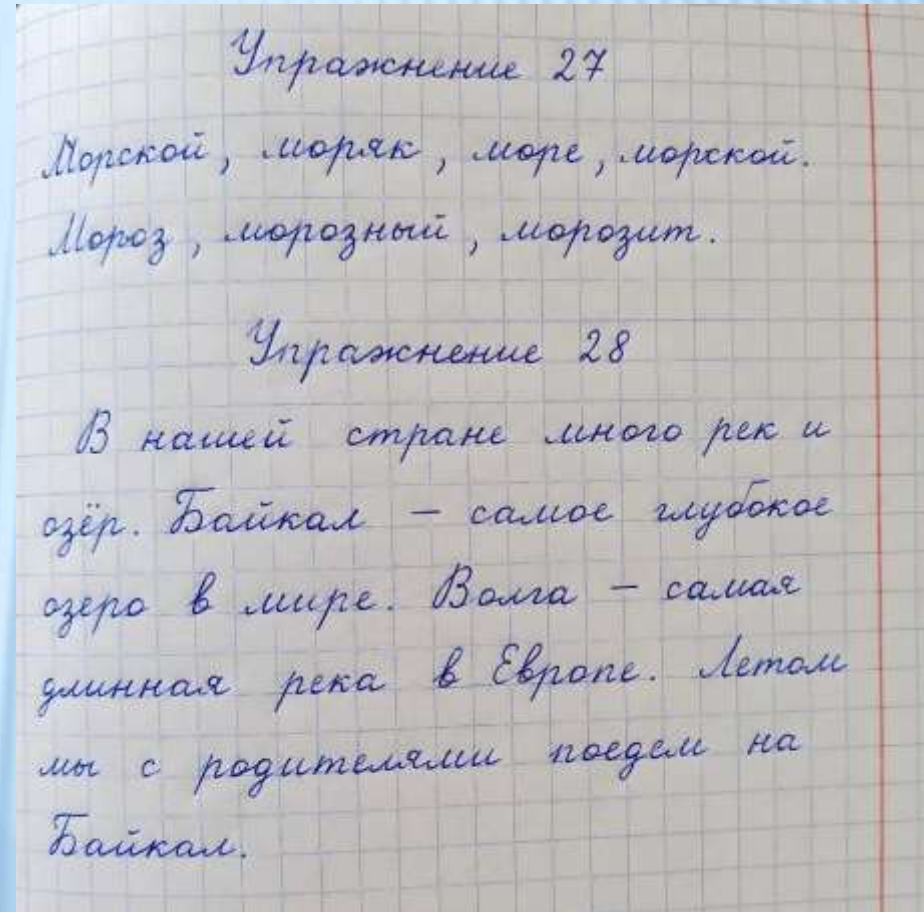 Упражнение 27
Морской, моряк, море, морской.
Мороз, морозный, морозит.
Упражнение 28
В нашей стране много рек и
озёр. Байкал – самое глубокое
озеро в мире. Волга – самая
длинная река в Европе. Летом
мы с родителями поедем на
Байкал.